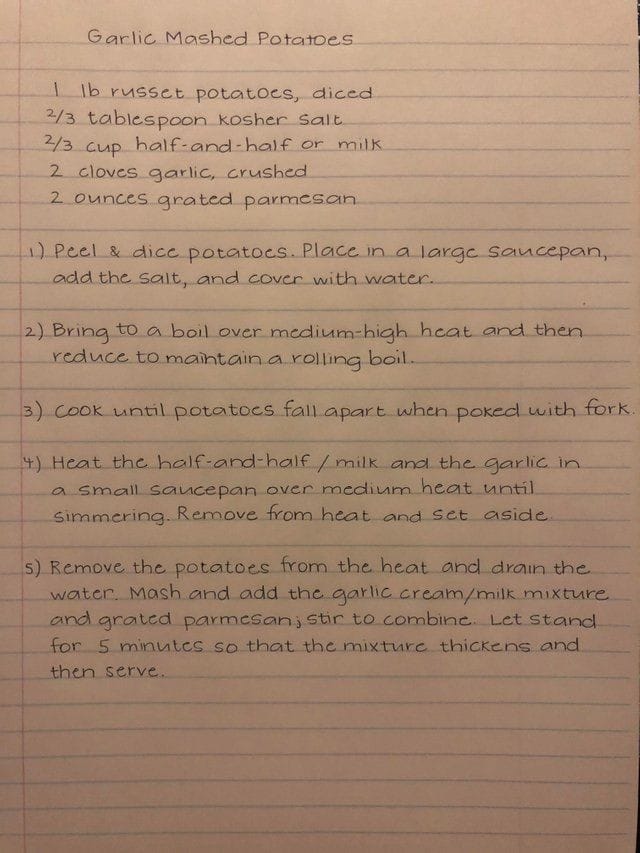 Garlic Mashed Potatoes
1 lb russet potatoes, diced
2/3 tablespoon kosher salt
2/3 cup half-and-half or milk
2 cloves garlic, crushed
2 ounces grated parmesan
1) Peel & dice potatoes. Place in a large saucepan,
add the salt, and cover with water.
2) Bring to a boil over medium-high heat and then
reduce to maintain a rolling boil.
3) Cook until potatoes fall apart when poked with fork.
4) Heat the half-and-half / milk and the garlic in
a small saucepan over medium heat until
simmering. Remove from heat and set aside.
5) Remove the potatoes from the heat and drain the
water. Mash and add the garlic cream/milk mixture
and grated parmesan; stir to combine. Let stand
for 5 minutes so that the mixture thickens and
then serve.